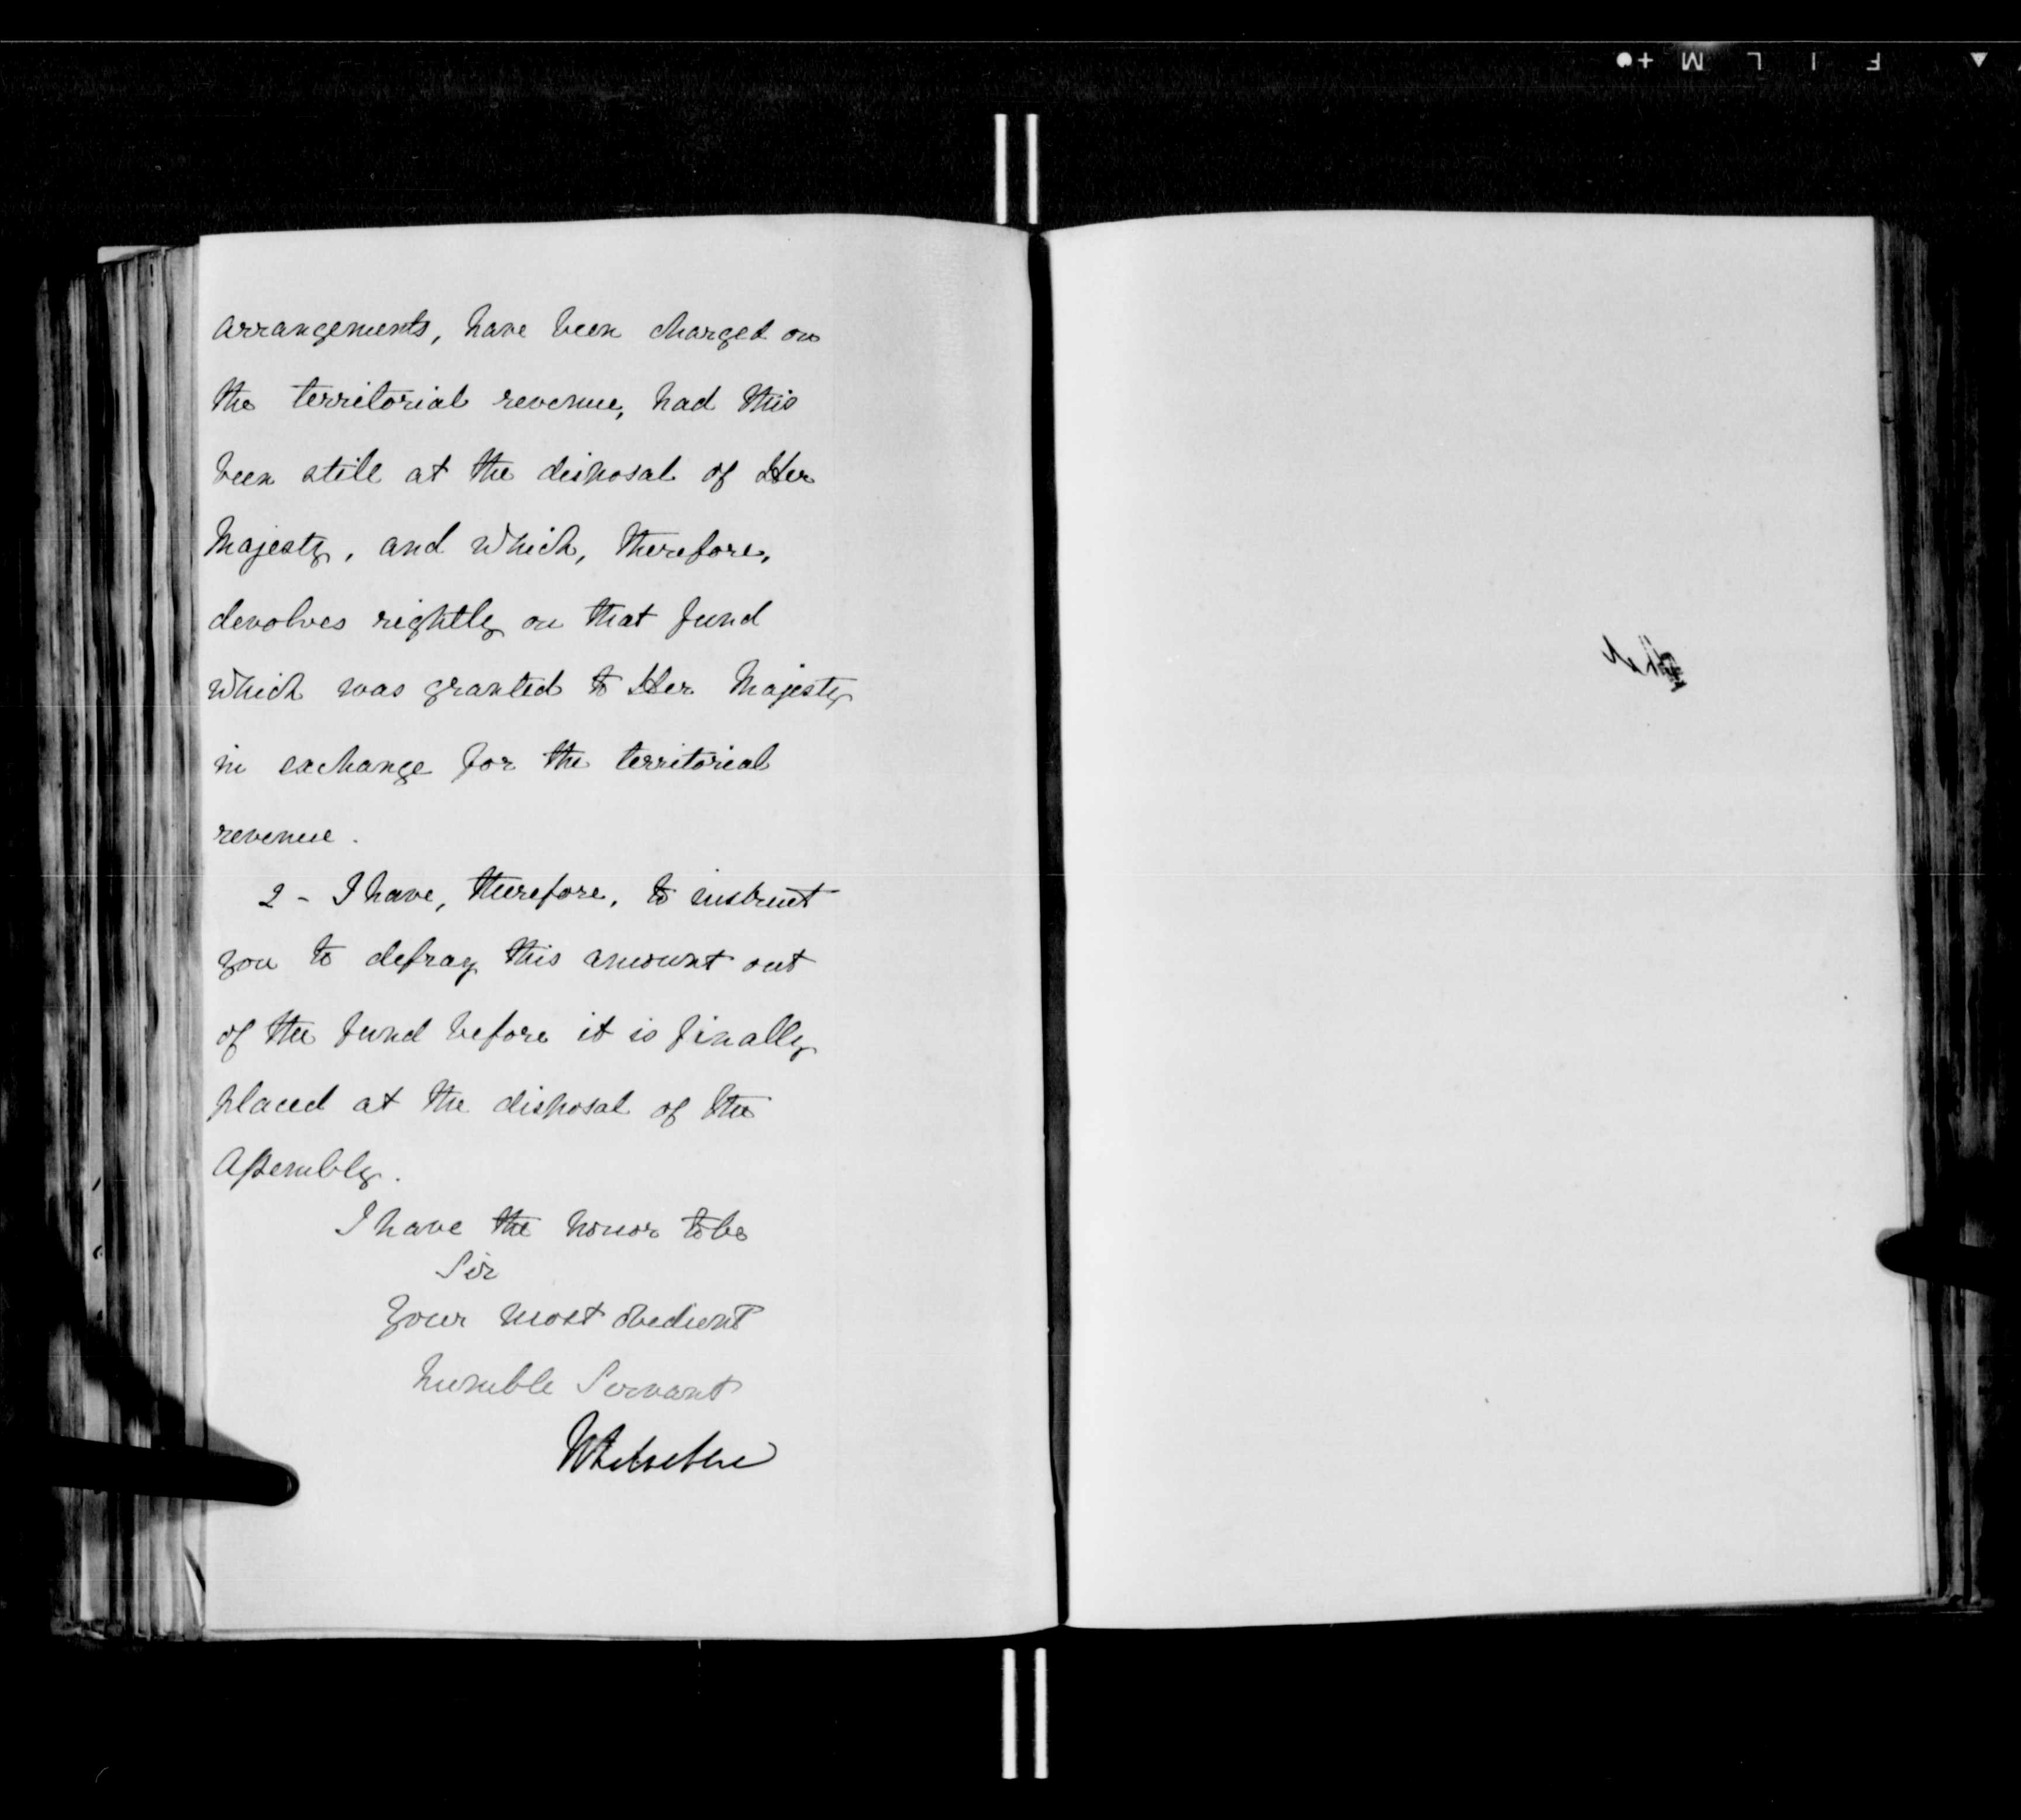 FILM
arrangements, have been charged on
the territorial revenue, had this
been still at the disposal of Her
Majesty, and which, therefore,
devolves rightly on that fund
which was granted to Her Majesty
in exchange for the territorial
revenue.
2 - I have, therefore, to instruct
you to defray this amount out
of the fund before it is finally
placed at the disposal of the
Assembly.
I have the honor to be
Sir
Your most obedient
humble Servant